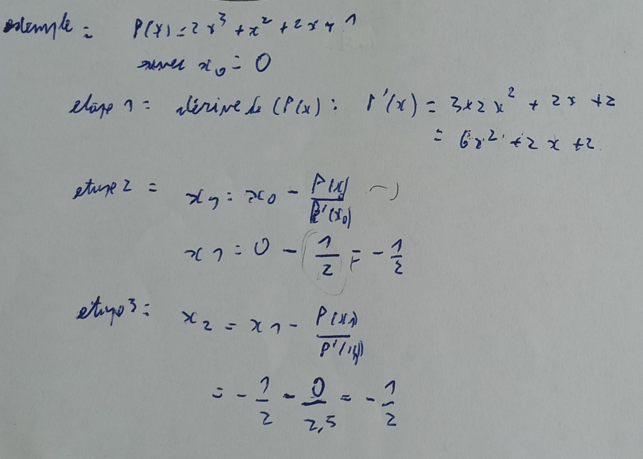 exemple = P(x) = 2x³ + x² + 2x + 1
avec x₀ = 0
etape 1 = dérivée de (P(x) : P'(x) = 3×2x² + 2x + 2
= 6x² + 2x + 2
etape 2 = x₁ = x₀ - P(x₀)/P'(x₀)
x₁ = 0 - 1/2 = - 1/2
etape 3 = x₂ = x₁ - P(x₁)/P'(x₁)
= - 1/2 - 0/2,5 = - 1/2